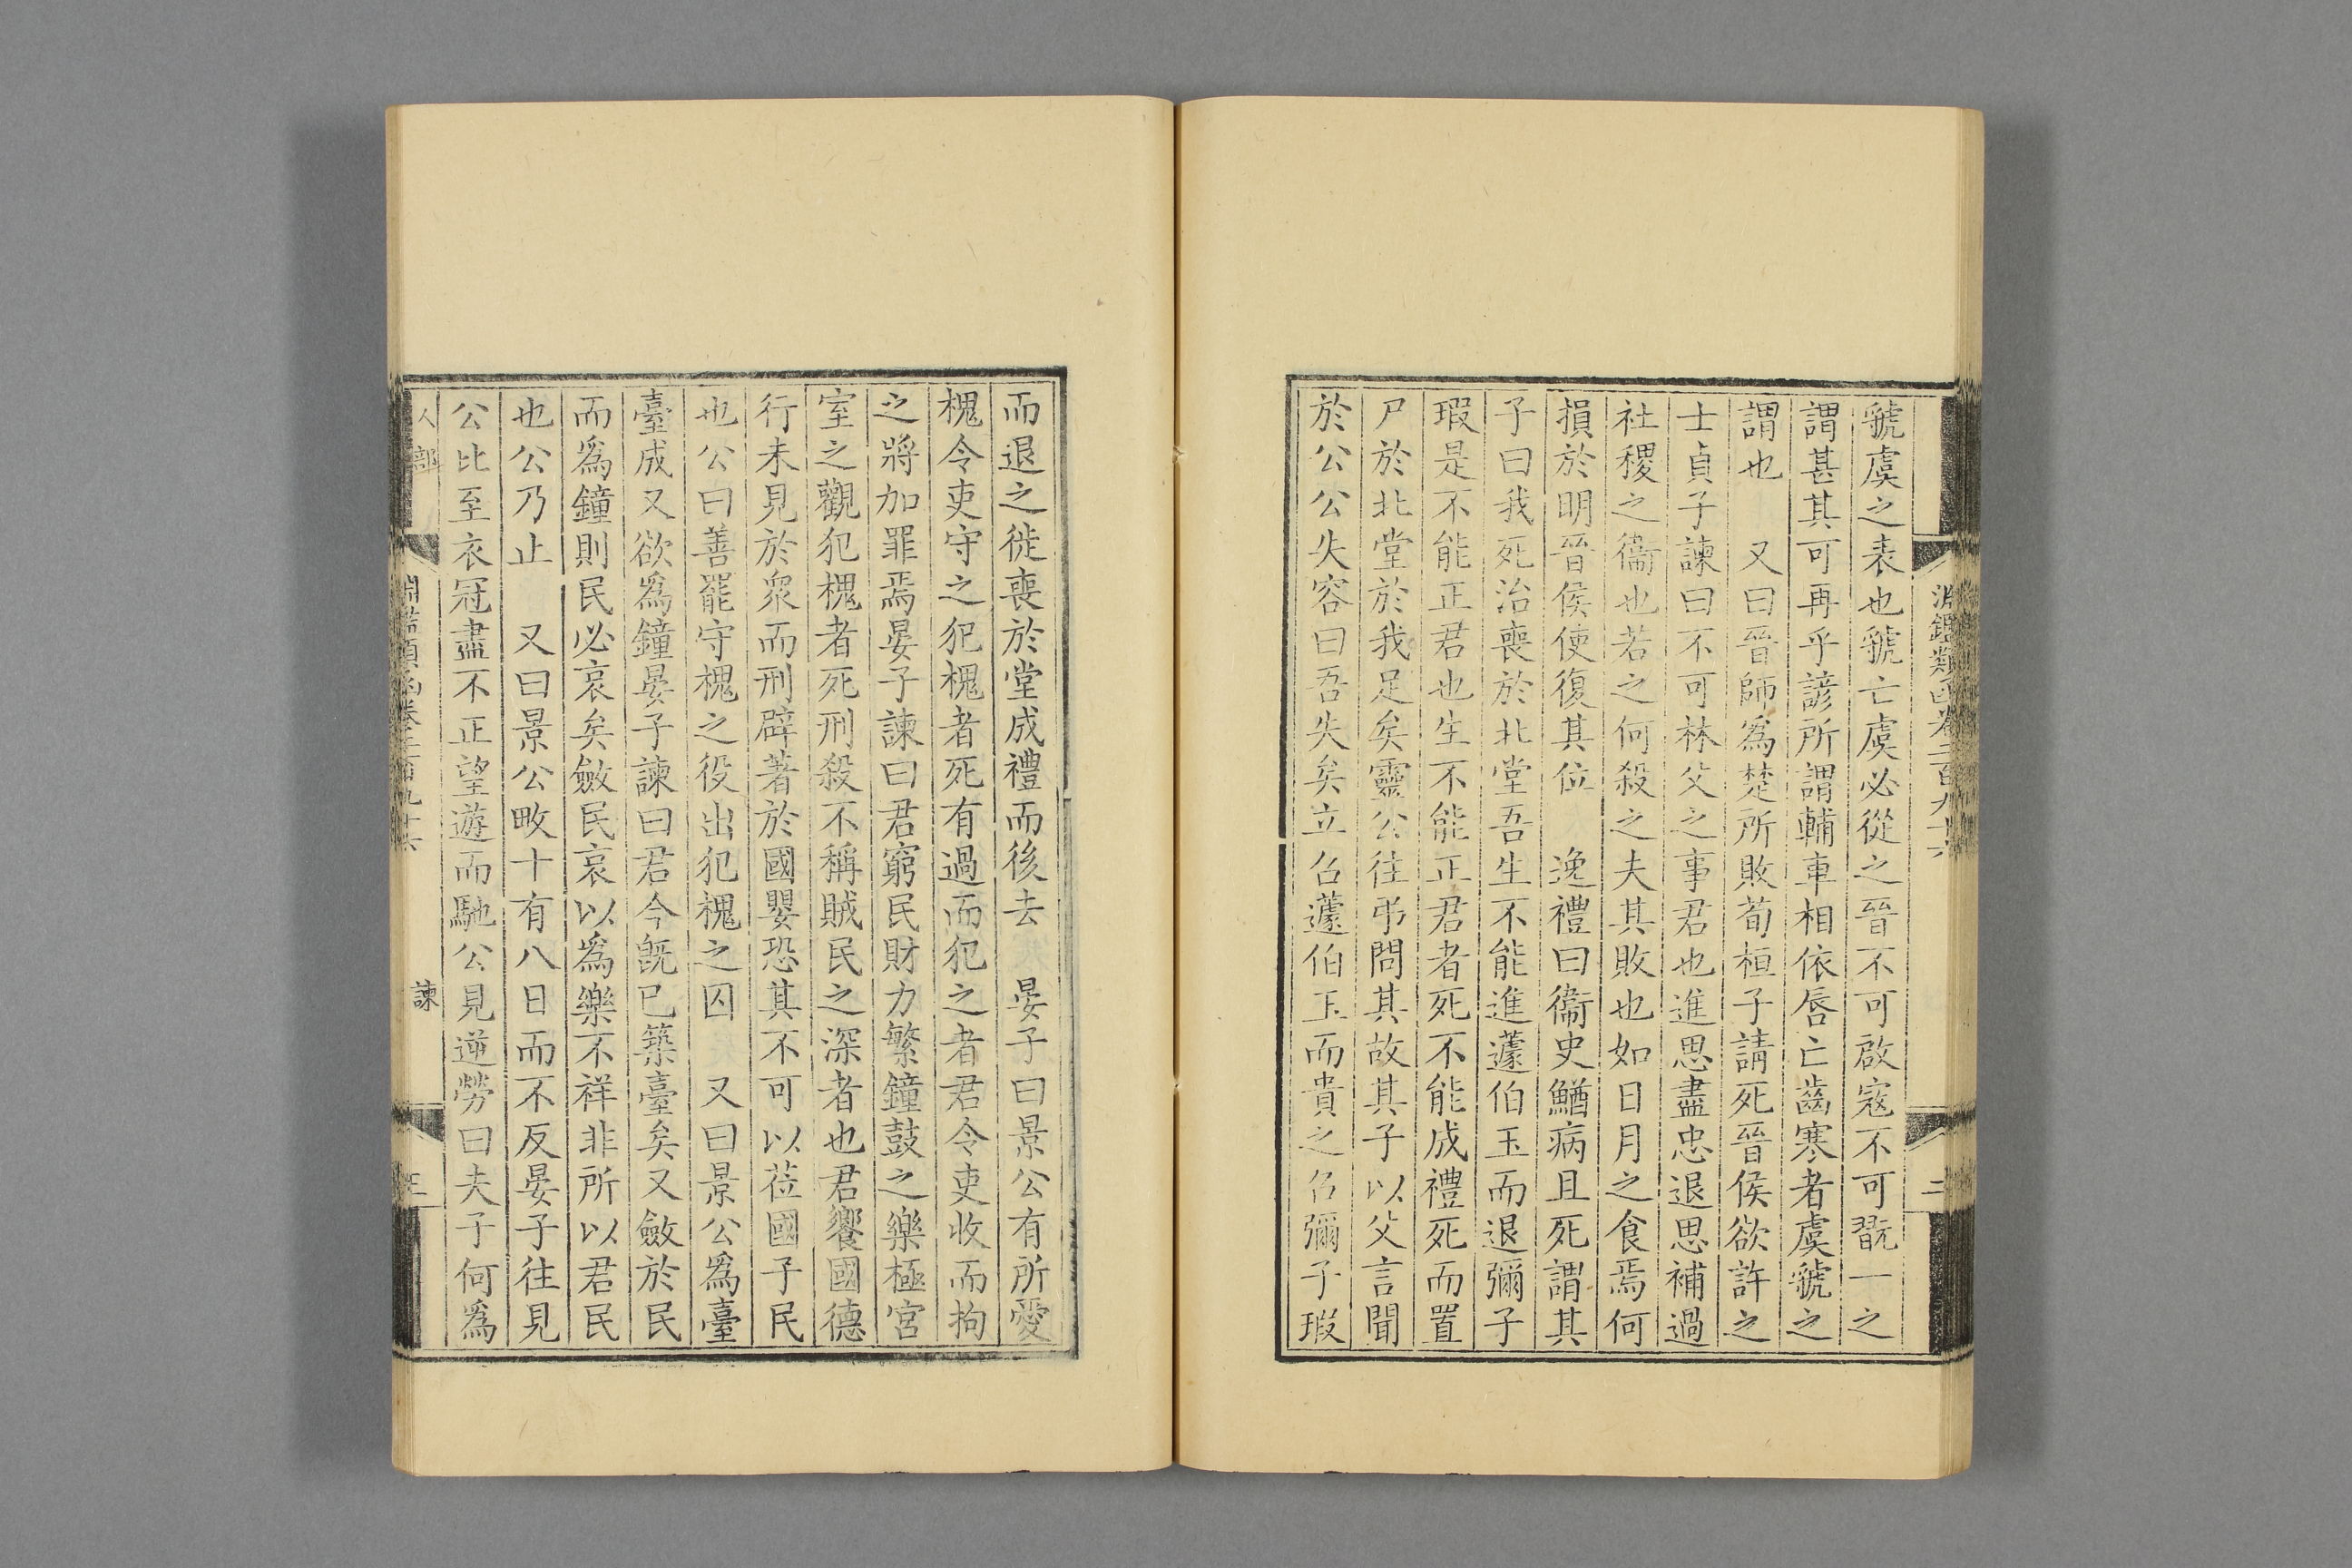 淵鑑類函卷二百九十六
二
虢虞之表也虢亡虞必從之晉不可啟寇不可翫一之
謂甚其可再乎諺所謂輔車相依唇亡齒寒者虞虢之
謂也 又曰晉師為楚所敗荀桓子請死晉侯欲許之
士貞子諫曰不可林父之事君也進思盡忠退思補過
社稷之衞也若之何殺之夫其敗也如日月之食焉何
損於明晉侯使復其位 逸禮曰衞史鰌病且死謂其
子曰我死治喪於北堂吾生不能進蘧伯玉而退彌子
瑕是不能正君也生不能正君者死不能成禮死而置
尸於北堂於我足矣靈公往弔問其故其子以父言聞
於公公失容曰吾失矣立召蘧伯玉而貴之召彌子瑕
而退之徙喪於堂成禮而後去 晏子曰景公有所愛
槐令吏守之犯槐者死有過而犯之者君令吏收而拘
之將加罪焉晏子諫曰君窮民財力繁鐘鼓之樂極宮
室之觀犯槐者死刑殺不稱賊民之深者也君饗國德
行未見於眾而刑辟著於國嬰恐其不可以莅國子民
也公曰善罷守槐之役出犯槐之囚 又曰景公爲臺
臺成又欲爲鐘晏子諫曰君今旣已築臺矣又斂於民
而爲鐘則民必哀矣斂民哀以爲樂不祥非所以君民
也公乃止 又曰景公畋十有八日而不反晏子往見
公比至衣冠盡不正望遊而馳公見逆勞曰夫子何爲
人部
淵鑑類函卷二百九十六
諫
三